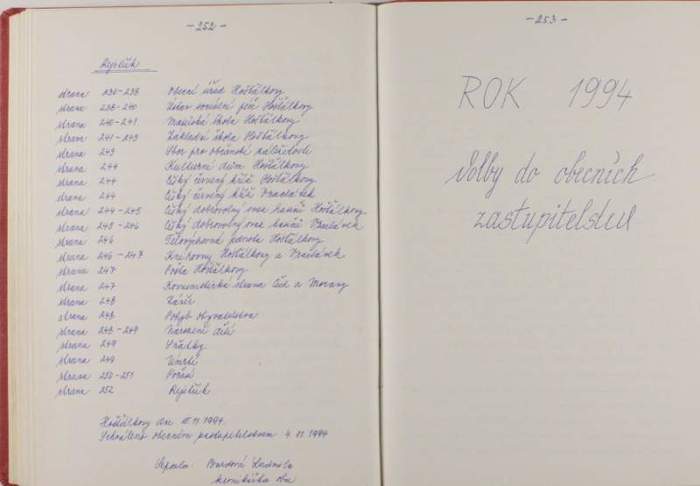 - 252 -
Rejstřík
strana 236-238 Obecní úřad Hošťálkovy
strana 238-240 Ústav sociální péče Hošťálkovy
strana 240-241 Mateřská škola Hošťálkovy
strana 241-243 Základní škola Hošťálkovy
strana 243 Sbor pro občanské záležitosti
strana 244 Kulturní dům Hošťálkovy
strana 244 Český červený kříž Hošťálkovy
strana 244 Český červený kříž Vraclávek
strana 244-245 Český dobrovolný svaz hasičů Hošťálkovy
strana 245-246 Český dobrovolný svaz hasičů Vraclávek
strana 246 Tělovýchovná jednota Hošťálkovy
strana 246-247 Knihovny Hošťálkovy a Vraclávek
strana 247 Pošta Hošťálkovy
strana 247 Komunistická strana Čech a Moravy
strana 248 Závěr
strana 248 Pohyb obyvatelstva
strana 248-249 Narození dětí
strana 249 Sňatky
strana 249 Úmrtí
strana 250-251 Počasí
strana 252 Rejstřík
Hošťálkovy dne 11 1994.
Schváleno obecním zastupitelstvem 4. 11. 1994
Zapsala: Ludmila
kronikářka obce
- 253 -
ROK 1994
Volby do obecních
zastupitelstev